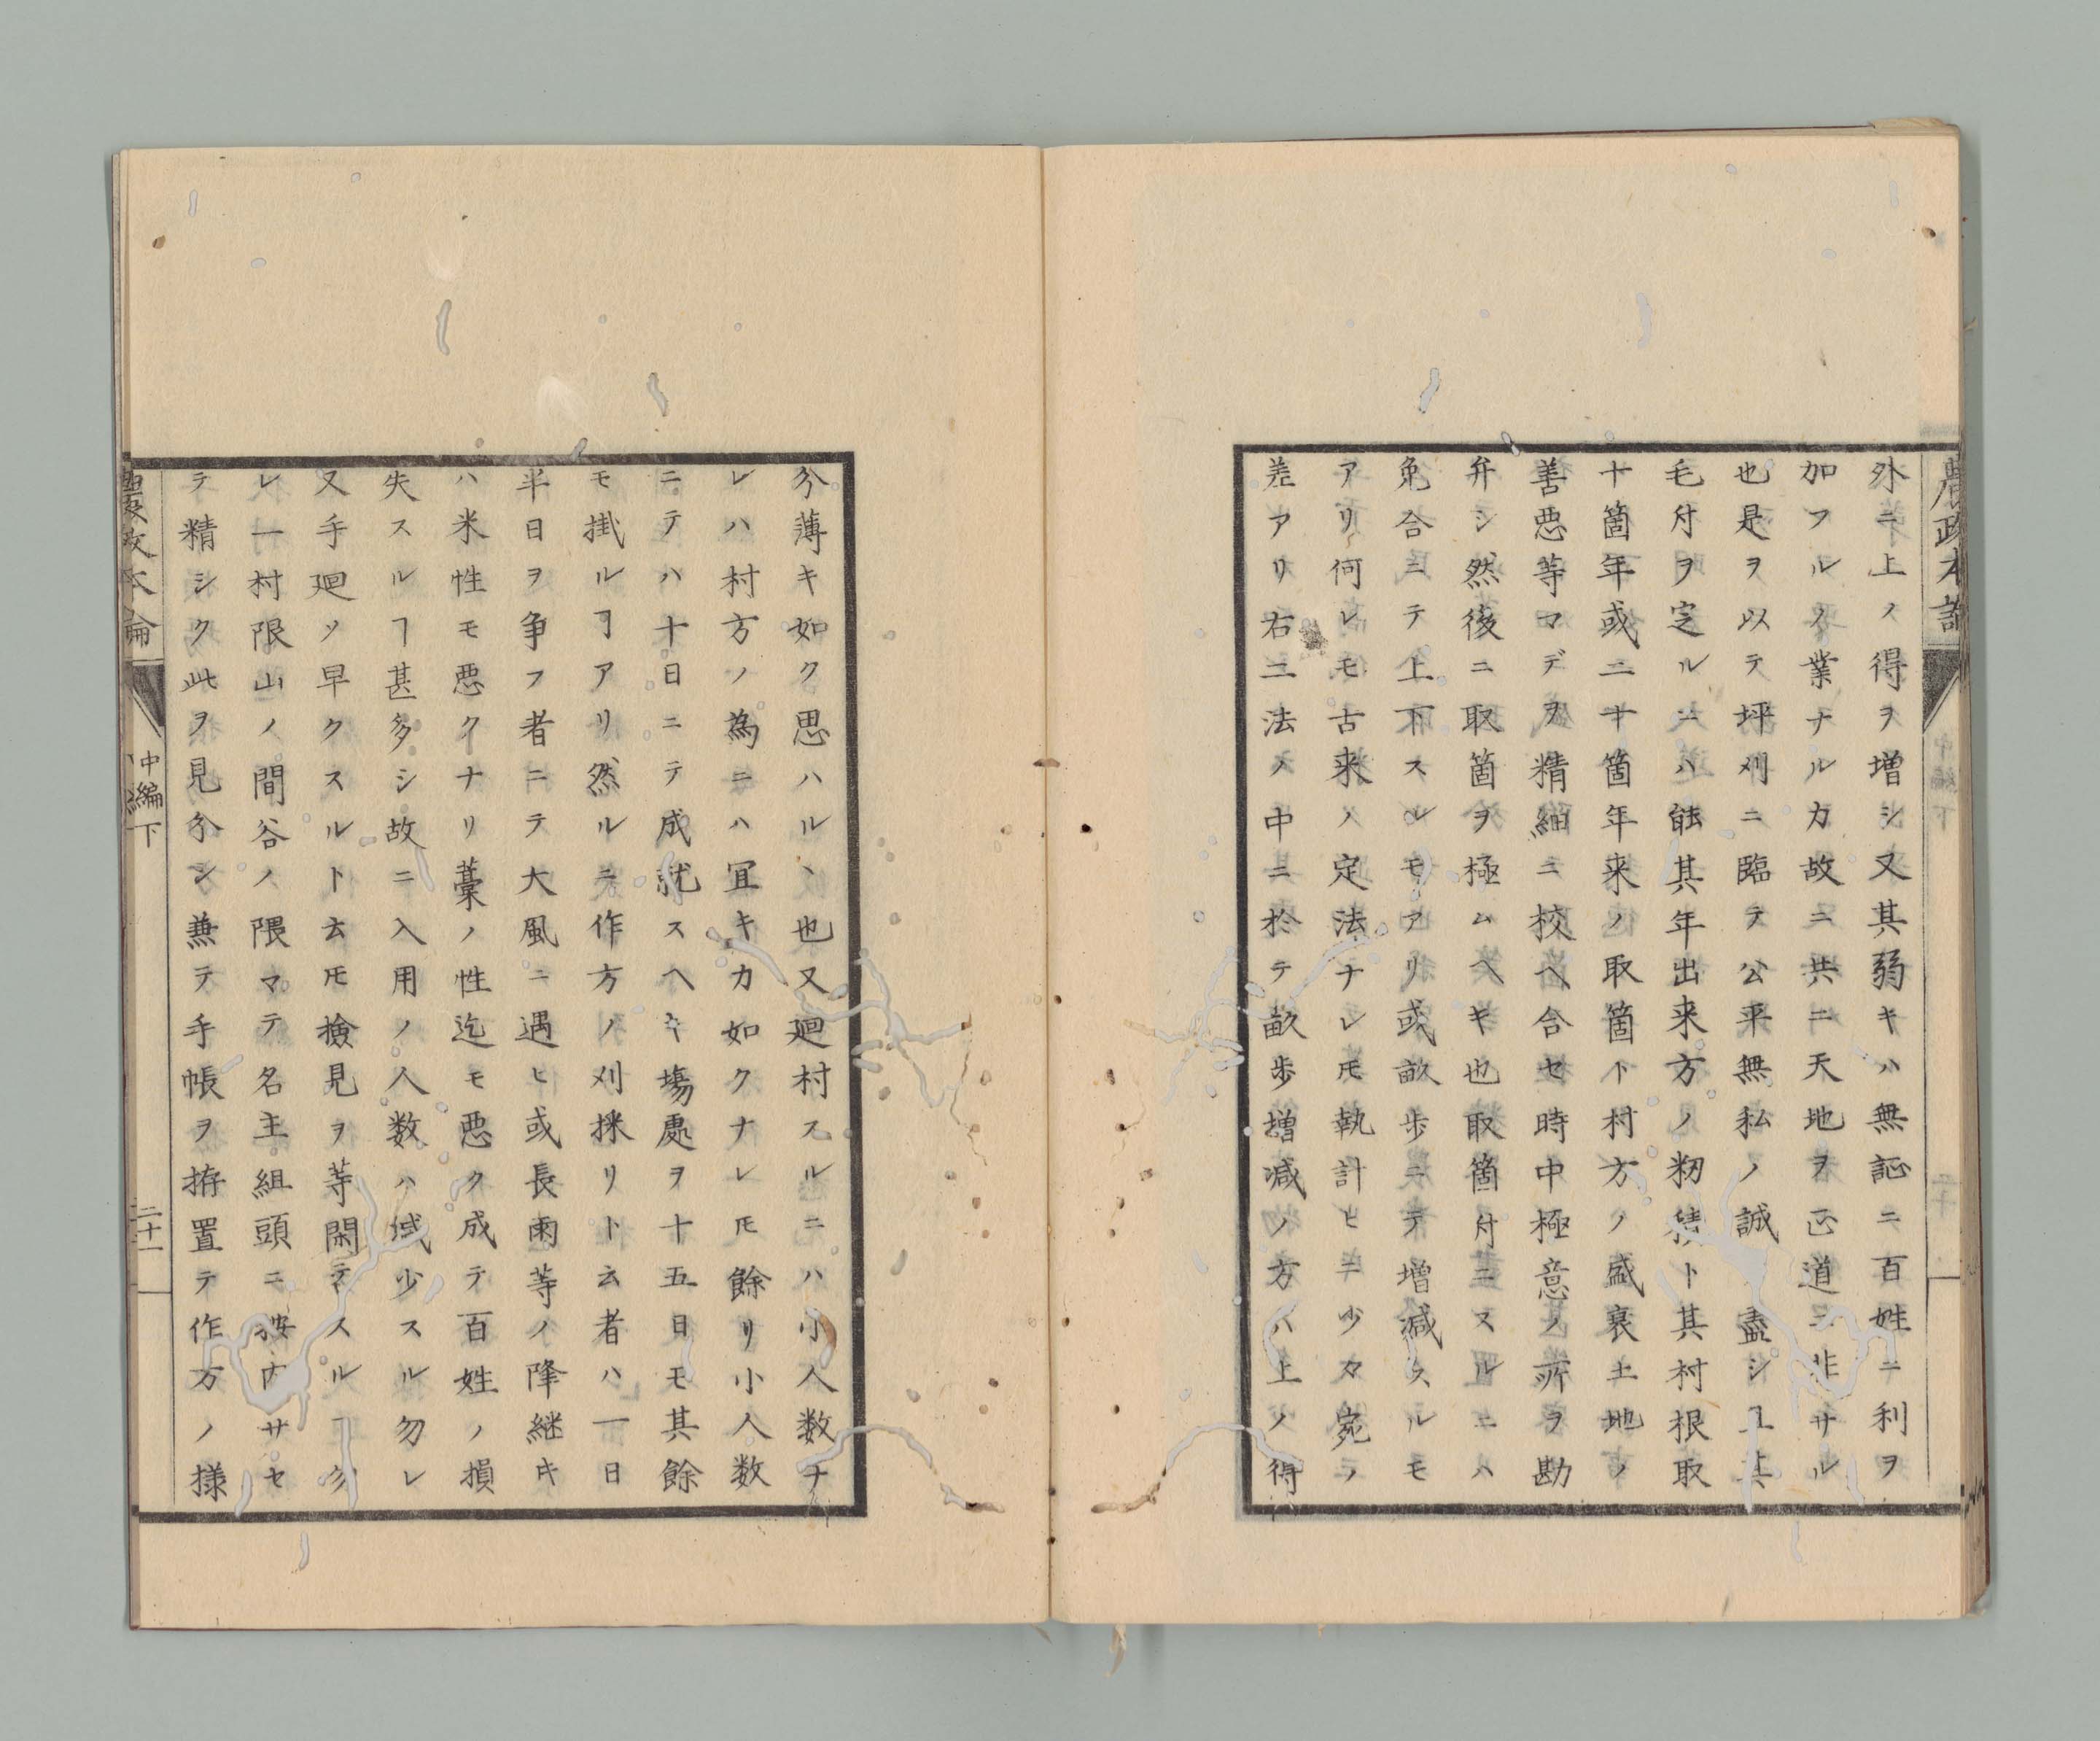 農政本論
外ニ上ノ得ヲ増シ又其弱キハ無証ニ百姓ニ利ヲ
加フルノ業ナルカ故ニ共ニ天地ヲ正道ニ非サル
也是ヲ以テ坪刈ニ臨テ公平無私ノ誠盡シヿ其
毛付ヲ定ルニハ能其年出来方ノ籾績ト其村根取
十箇年或二十箇年来ノ取箇ト村方ノ盛衰土地ノ
善悪等マデヲ精細ニ校ヘ合セ時中極意ノ所ヲ勘
弁シ然後ニ取箇ヲ極ムヘキ也取箇付ニスルニハ
免合ニテ上下スルモアリ或畝歩ニテ増減スルモ
アリ何レモ古来ノ定法ナレ𪜈執計ヒ少々宛ノ
差アリ右二法ノ中ニ於テ畝歩増減ノ方ハ上ノ得
分薄キ如ク思ハルヽ也又廻村スルニハ小人数ナ
レハ村方ノ為ニハ冝キカ如クナレ𪜈餘リ小人数
ニテハ十日ニテ成就スヘキ塲處ヲ十五日モ其餘
モ掛ルヿアリ然ルニ作方ノ刈採リト云者ハ一日
半日ヲ争フ者ニテ大風ニ遇ヒ或長雨等ノ降継キ
ハ米性モ悪クナリ藁ノ性迄モ悪ク成テ百姓ノ損
失スルヿ甚多シ故ニ入用ノ人数ハ減少スル勿レ
又手廻ソ早クスルト云𪜈撿見ヲ等閑ニスルヿ勿
レ一村限山ノ間谷ノ隈マテ名主組頭ニ按内サセ
テ精シク此ヲ見分シ兼テ手帳ヲ拵置テ作方ノ様
農政本論
中編下
二十一